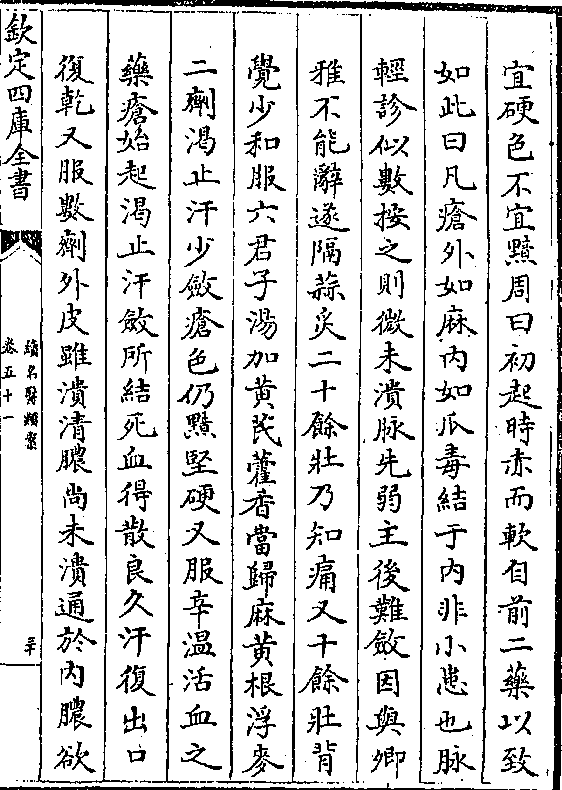 宜硬色不宜黯周曰初起時赤而軟自前二藥以致
如此曰凡瘡外如麻内如瓜毒結于内非小患也脉
輕診似數按之則微未潰脉先弱主後難斂因與卿
雅不能辭遂隔蒜灸二十餘壯乃知痛又十餘壯背
覺少和服六君子湯加黄芪藿香當歸麻黄根浮麥
二劑渴止汗少斂瘡色仍黯堅硬又服辛温活血之
藥瘡始起渴止汗斂所結死血得散良久汗復出口
復乾又服數劑外皮雖潰清膿尚未潰通於内膿欲
欽定四庫全書
續名醫類案
卷五十一
三十